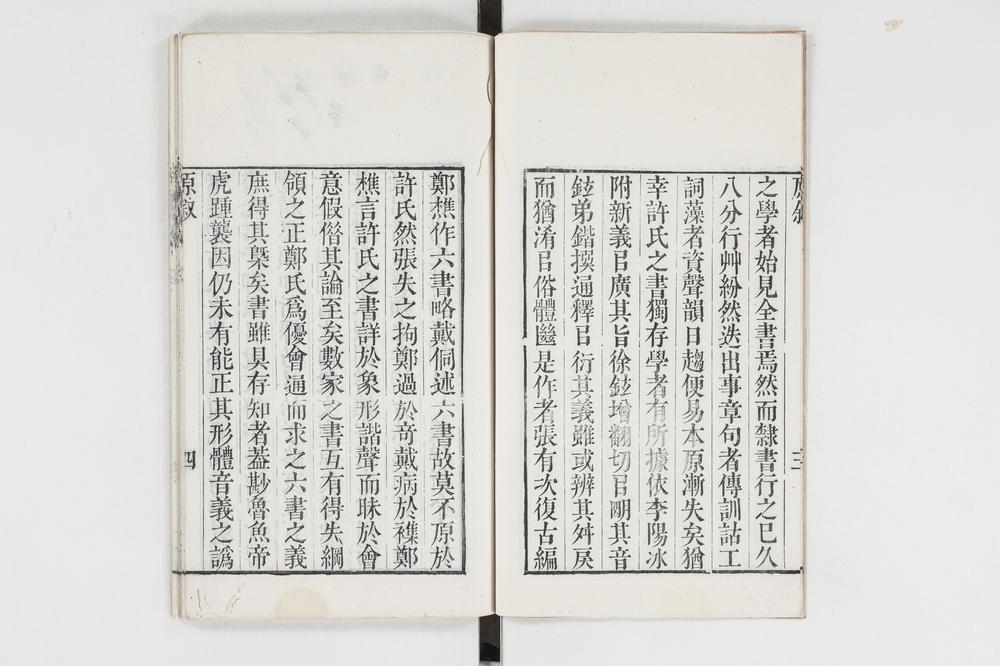 之學者始見全書焉然而隸書行之已久
八分行艸紛然迭出事章句者傳訓詁工
詞藻者資聲韻日趨便易本原漸失矣猶
幸許氏之書獨存學者有所據依李陽冰
附新義㠯廣其旨徐鉉增翻切㠯朙其音
鉉弟鍇撰通釋㠯衍其義雖或辨其舛戾
而猶淆㠯俗體繇是作者張有次復古編
三
鄭樵作六書略戴侗述六書故莫不原於
許氏然張失之拘鄭過於奇戴病於襍鄭
樵言許氏之書詳於象形諧聲而昧於會
意假僣其論至矣數家之書互有得失綱
領之正鄭氏爲優會通而求之六書之義
庶得其槩矣書雖具存知者葢尠魯魚帝
虎踵襲因仍未有能正其形體音義之譌
原敘
四